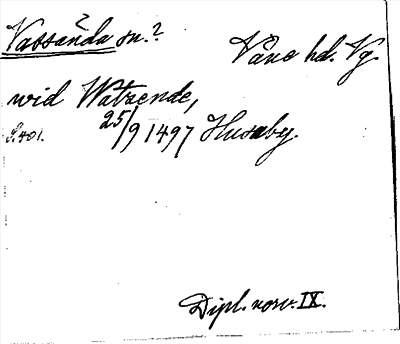 Vassända sn.? Våne hd. Vg.
wid Watzende,
S. 401. 25/9 1497 Husaby.
Dipl. norv. IX.